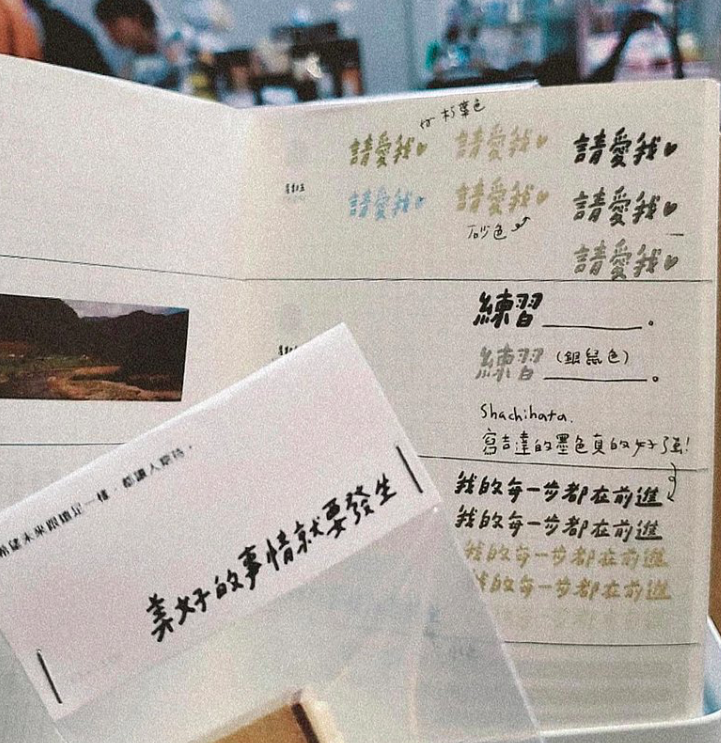 朽葉色
請愛我♥ 請愛我♥ 請愛我♥
請愛我♥ 請愛我♥ 請愛我♥
砂色
請愛我♥
練習______。
練習（銀鼠色）______。
Shachihata.
寫吉達的墨色真的好強!
我的每一步都在前進
我的每一步都在前進
我的每一步都在前進
我的每一步都在前進
希望未來跟遠足一樣，都讓人期待。
美好的事情就要發生